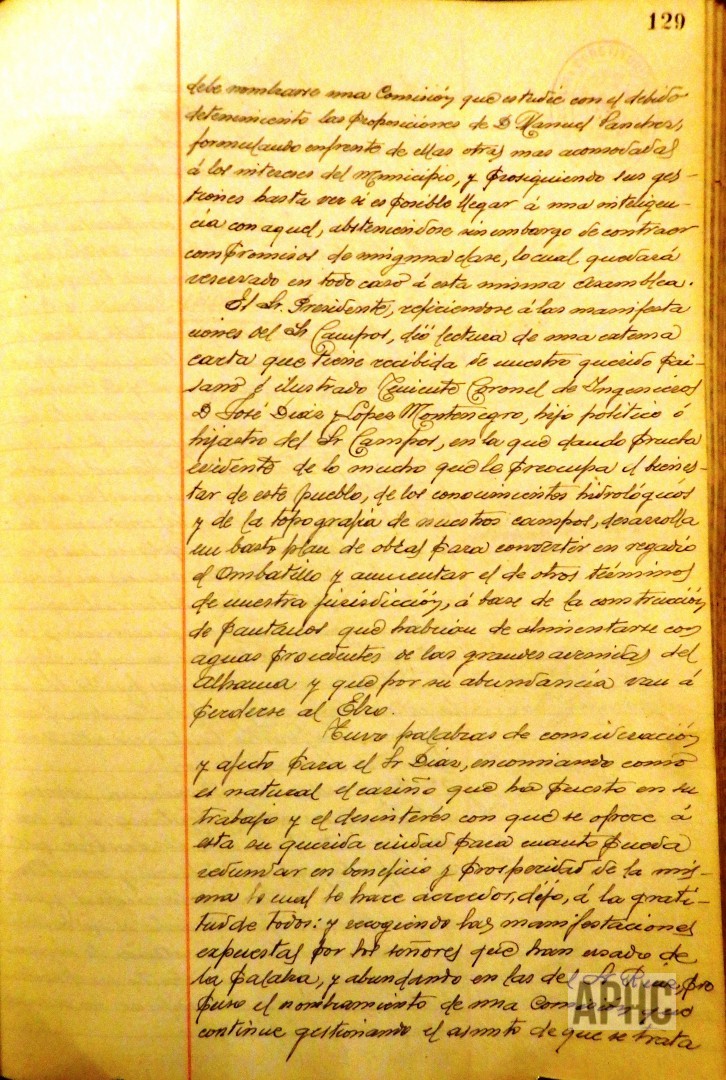 129
debe nombrarse una Comisión que estudie con el debido
detenimiento las proposiciones de D Manuel Sanchez,
formulando enfrente de ellas otras mas acomodadas
á los intereses del Municipio, y prosiguiendo sus ges-
tiones hasta ver si es posible llegar á una inteligen-
cia con aquel, absteniendose sin embargo de contraer
compromisos de ninguna clase, lo cual quedará
reservado en todo caso á esta misma Asamblea.
El Sr. Presidente, refiriendose á las manifesta
ciones del Sr Campos, dió lectura de una extensa
carta que tiene recibida de nuestro querido pai-
sano é ilustrado Teniente Coronel de Ingenieros
D José Diaz y Lopez Montenegro, hijo politico ó
hijastro del Sr Campos, en la que dando prueba
evidente de lo mucho que le preocupa el bienes-
tar de este pueblo, de los conocimientos hidrológicos
y de la topografia de nuestros campos, desarrolla
un basto plan de obras para convertir en regadio
el Ombatillo y aumentar el de otros términos
de nuestra jurisdicción, á base de la construcción
de pantanos que habrian de alimentarse con
aguas procedentes de las grandes avenidas del
Alhama y que por su abundancia van á
perderse al Ebro.
Tuvo palabras de consideración
y afecto para el Sr Diaz, encomiando como
es natural el cariño que ha puesto en su
trabajo y el desinterés con que se ofrece á
esta su querida ciudad para cuanto pueda
redundar en beneficio y prosperidad de la mis-
ma lo cual le hace acreedor, dijo, á la grati-
tud de todos: y recogiendo las manifestaciones
expuestas por los señores que han usado de
la palabra, y abundando en las del Sr Ruiz, pro
puso el nombramiento de una Comisión que
continue gestionando el asunto de que se trata
APHC